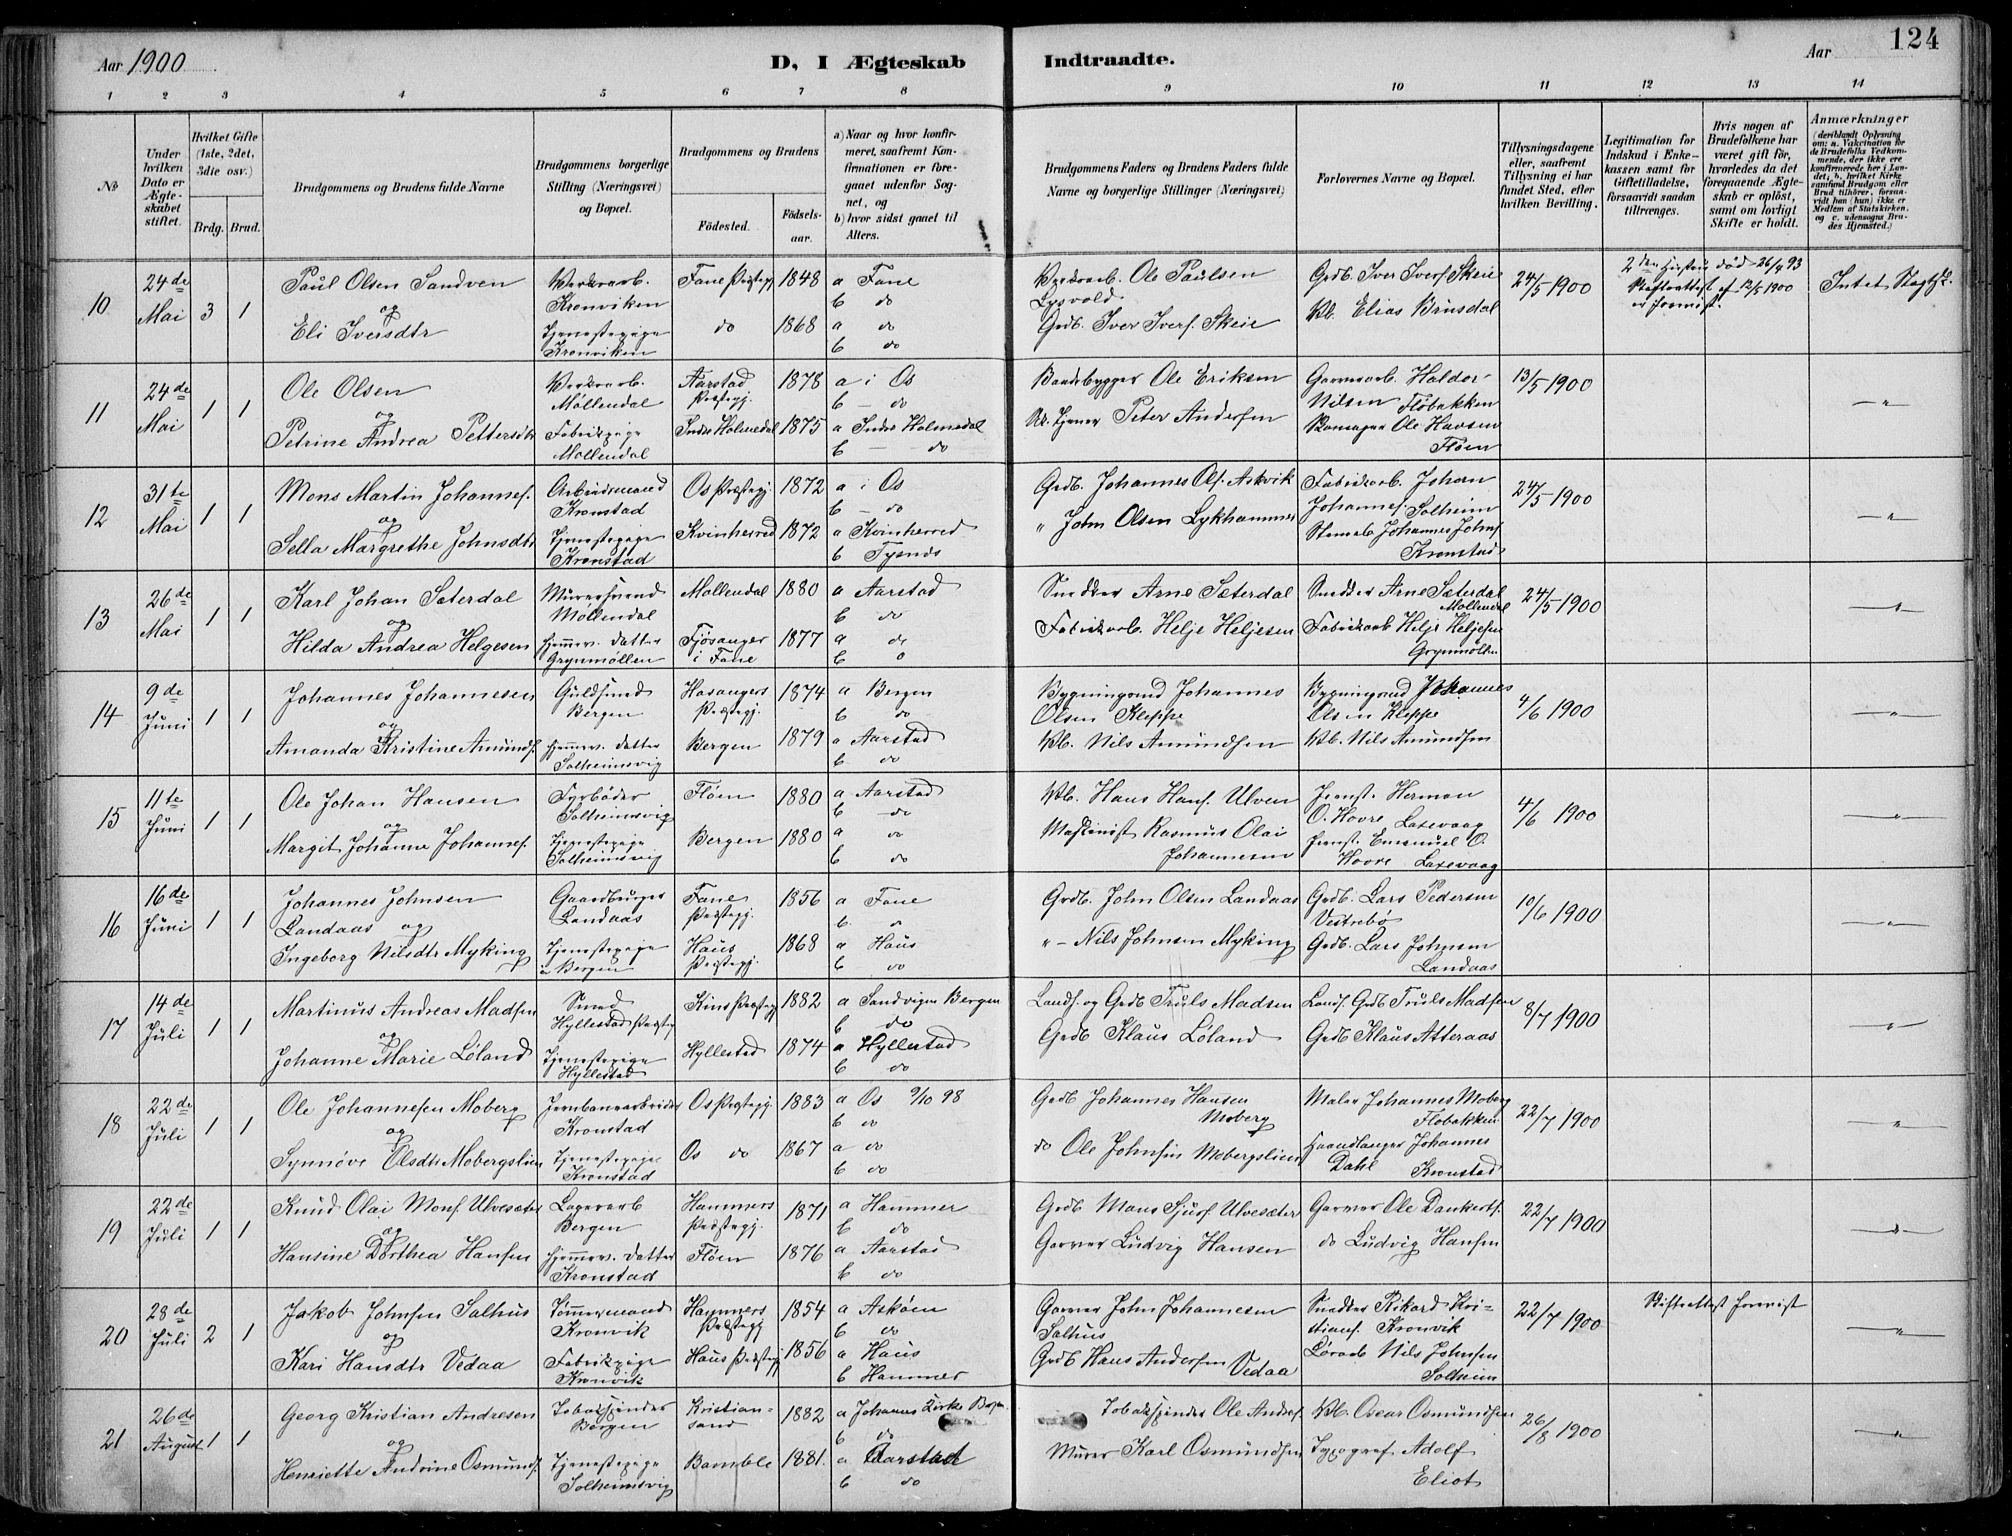 Aar 1900
D, I Ægteskab
Indtraadte.
Aar
124
1 2 3 4 5 6 7 8 9 10 11 12 13 14
№
Under hvilken Dato er Ægteskabet stiftet.
Hvilket Gifte (1ste, 2det, 3die osv.)
Brdg. Brud.
Brudgommens og Brudens fulde Navne
Brudgommens borgerlige Stilling (Næringsvei) og Bopæl.
Brudgommens og Brudens
Födested.
Födsels-aar.
a) Naar og hvor konfirmeret, saafremt Konfirmationen er foregaaet udenfor Sognet, og
b) hvor sidst gaaet til Alters.
Brudgommens Faders og Brudens Faders fulde Navne og borgerlige Stillinger (Næringsvei)
Forlovernes Navne og Bopæl.
Tillysningsdagene eller, saafremt Tillysning ei har fundet Sted, efter hvilken Bevilling.
Legitimation for Indskud i Enkekassen samt for Giftetilladelse, forsaavidt saadan tiltrænges.
Hvis nogen af Brudefolkene har været gift för, hvorledes da det foregaaende Ægteskab er oplöst, samt om lovligt Skifte er holdt.
Anmærkninger
(deriblandt Oplysning om: a. Vakcination for de Brudefolks Vedkommende, der ikke ere konfirmerede her i Landet, b. hvilket Kirkesamfund Brudgom eller Brud tilhörer, forsaavidt han (hun) ikke er Medlem af Statskirken, og c. udensogns Brudes Hjemsted.)
10 24de Mai 3 1
Paul Olsen Sandven
og
Eli Iversdtr
Værkarb. Kronviken
Tjenestepige Kronviken
Fane Præstegj 1848 a Fane
b do
do 1868 a do
b do
Værkarb. Ole Paulsen Lysvold
Grdb. Iver Ivers. Skeie
Grdb. Iver Ivers. Skeie
Kb. Elias Brunsdal
24/5 1900
2den Hustru død 26/4 93
Skifteattest af 12/5 1900
er forevist.
Intet
11 24de Mai 1 1
Ole Olsen
og
Petrine Andrea Pettersdtr
Værkarb. Møllendal
Fabrikpige Møllendal
Aarstad Præstegj. 1878 a i Os
b — do
Indre Holmedal 1875 a Indre Holmedal
b — do
Baadebygger Ole Eriksen
Peter Andersen
Garverarb. Haldor Nilsen Fløbakken
Ole Hansen Fløen
13/5 1900
— " —
12 31te Mai 1 1
Mons Martin Johannes.
og
Sella Margrethe Johnsdtr
Arbeidsmand Kronstad
Tjenestepige Kronstad
Os Præstegj 1872 a i Os
b — do
Kvinherred 1872 a Kvinherred
b Tysnæs
Grdb. Johannes Ols. Askvik
" John Olsen Lykhammer
Fabrikarb. Johan Johannes. Solheim
Stenarb Johannes Johns. Kronstad
24/5 1900
— " —
13 26de Mai 1 1
Karl Johan Sæterdal
og
Hilda Andrea Helgesen
Murersvend Møllendal
Hjemmev. Datter Grynmøllen
Møllendal 1880 a Aarstad
b do
Fjøsanger i Fane 1877 a do
b o
Snedker Arne Sæterdal
Fabrikarb. Helje Heljesen
Snedker Arne Sæterdal Møllendal
Fabrikarb Helje Heljesen Grynmøllen
24/5 1900
— " —
14 9de Juni 1 1
Johannes Johannesen
og
Amanda Kristine Amunds.
Guldsmed Bergen
Hjemmev. Datter Solheimsvig
Hosangers Præstegj. 1874 a Bergen
b do
Bergen 1879 a Aarstad
b do
Bygningsmd Johannes Olsen Kleppe
Kb. Nils Amundsen
Bygningsmd Johannes Olsen Kleppe
Kb. Nils Amundsen
4/6 1900
— " —
15 11te Juni 1 1
Ole Johan Hansen
og
Margit Johanne Johannes.
Fyrbøder Solheimsvig
Tjenestepige Solheimsvig
Fløen 1880 a Aarstad
b — do
Bergen 1880 a do
b do
Kb. Hans Hans. Ulven
Maskinist Rasmus Olai Johannesen
Jernst. Herman O. Hovre Laxevaag
Jernst. Emanuel O. Hovre Laxevaag
4/6 1900
— " —
16 16de Juni 1 1
Johannes Johnsen Landaas og
Ingeborg Nilsdtr Myking
Gaardbruger Landaas
Tjenestepige i Bergen
Fane Præstegj. 1856 a Fane
b. do
Haus Præstegj. 1868 a Haus
b do
Grdb. John Olsen Landaas
" — Nils Johnsen Myking
Grdb. Lars Pedersen Vestrebø
Grdb. Lars Johnsen Landaas
10/6 1900
— " —
17 14de Juli 1 1
Martinus Andreas Madsen
og
Johanne Marie Løland
Smed Hyllestad Præstg
Tjenestepige Hyllestad
Kins Præstegj 1882 a Sandvigen Bergen
b do
Hyllestad 1874 a Hyllestad
b do
Lands. og Grdb Truls Madsen
Grdb Klaus Løland
Lands. Grdb Truls Madsen
Grdb Klaus Atteraas
8/7 1900
— " —
18 22de Juli 1 1
Ole Johannesen Moberg
og
Synnøve Olsdtr Mobergslien
Jernbanearbeider Kronstad
Tjenestepige Kronstad
Os Præstegj 1883 a Os 9/10 98
b do
Os do 1867 a do
b do
Grdb Johannes Hansen Moberg
do Ole Johnsen Mobergslien
Maler Johannes Moberg Fløbakken
Haandlanger Johannes Dahl Kronstad
22/7 1900
— " —
19 22de Juli 1 1
Knud Olai Mons. Ulvesæter
og
Hansine Dorthea Hansen
Lagerarb Bergen
Hjemmev. Datter Kronstad
Hammers Præstegj. 1871 a Hammer
b do
Fløen 1876 a Aarstad
b do
Grdb Mons Sjurs. Ulvesæter
Garver Ludvig Hansen
Garver Ole Dankerts.
do Ludvig Hansen
22/7 1900
— " —
20 28de Juli 2 1
Jakob Johnsen Salhus
og
Kari Hansdtr Vedaa
Tømmermand Kronvik
Fabrikpige Kronvik
Hammers Præstegj 1854 a Askøen
b do
Haus Præstegj 1856 a Haus
b Hammer
Garver John Johannesen Salhus
Grdb Hans Andersen Vedaa
Snedker Rikard Kristians. Kronvik
Nils Johnsen Solheim
22/7 1900
Skifteattest forevist
— " —
21 26de August 1 1
Georg Kristian Andresen
og
Henriette Andrine Osmunds.
Tobakspinder Bergen
Tjenestepige Solheimsvig
Kristiansand 1882 a Johannes Kirke Bergen
b do
Bamble 1881. a Aarstad
b do
Tobakspinder Ole Andres.
Murer Karl Osmundsen
Kb. Oscar Osmundsen
Typograf Adolf Eliot
26/8 1900
— " —